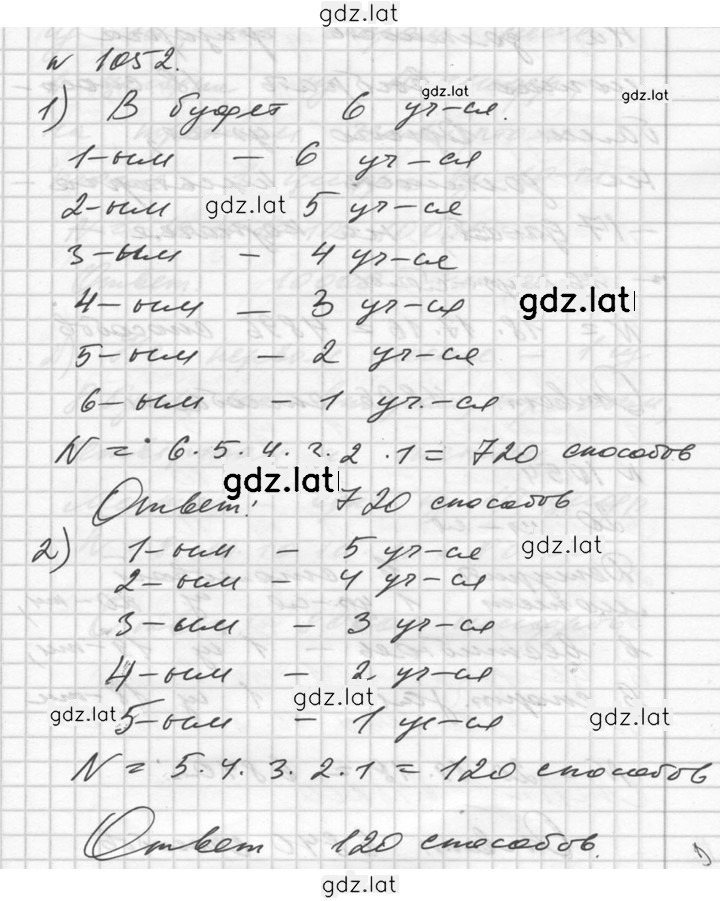 gdz.lat
№ 1052.
gdz.lat
gdz.lat
1) В буфет 6 уч-ся.
1-ым — 6 уч-ся
2-ым gdz.lat 5 уч-ся
3-ым — 4 уч-ся
4-ым — 3 уч-ся gdz.lat
5-ым — 2 уч-ся
6-ым — 1 уч.-ся
N = 6·5·4·3·2·1 = 720 способов
gdz.lat
Ответ: 720 способов
2) 1-ым — 5 уч-ся gdz.lat
2-ым — 4 уч-ся
3-ым — 3 уч-ся
4-ым — 2 уч-ся
gdz.lat
gdz.lat 5-ым — 1 уч-ся gdz.lat
N = 5·4·3·2·1 = 120 способов
Ответ 120 способов.
gdz.lat